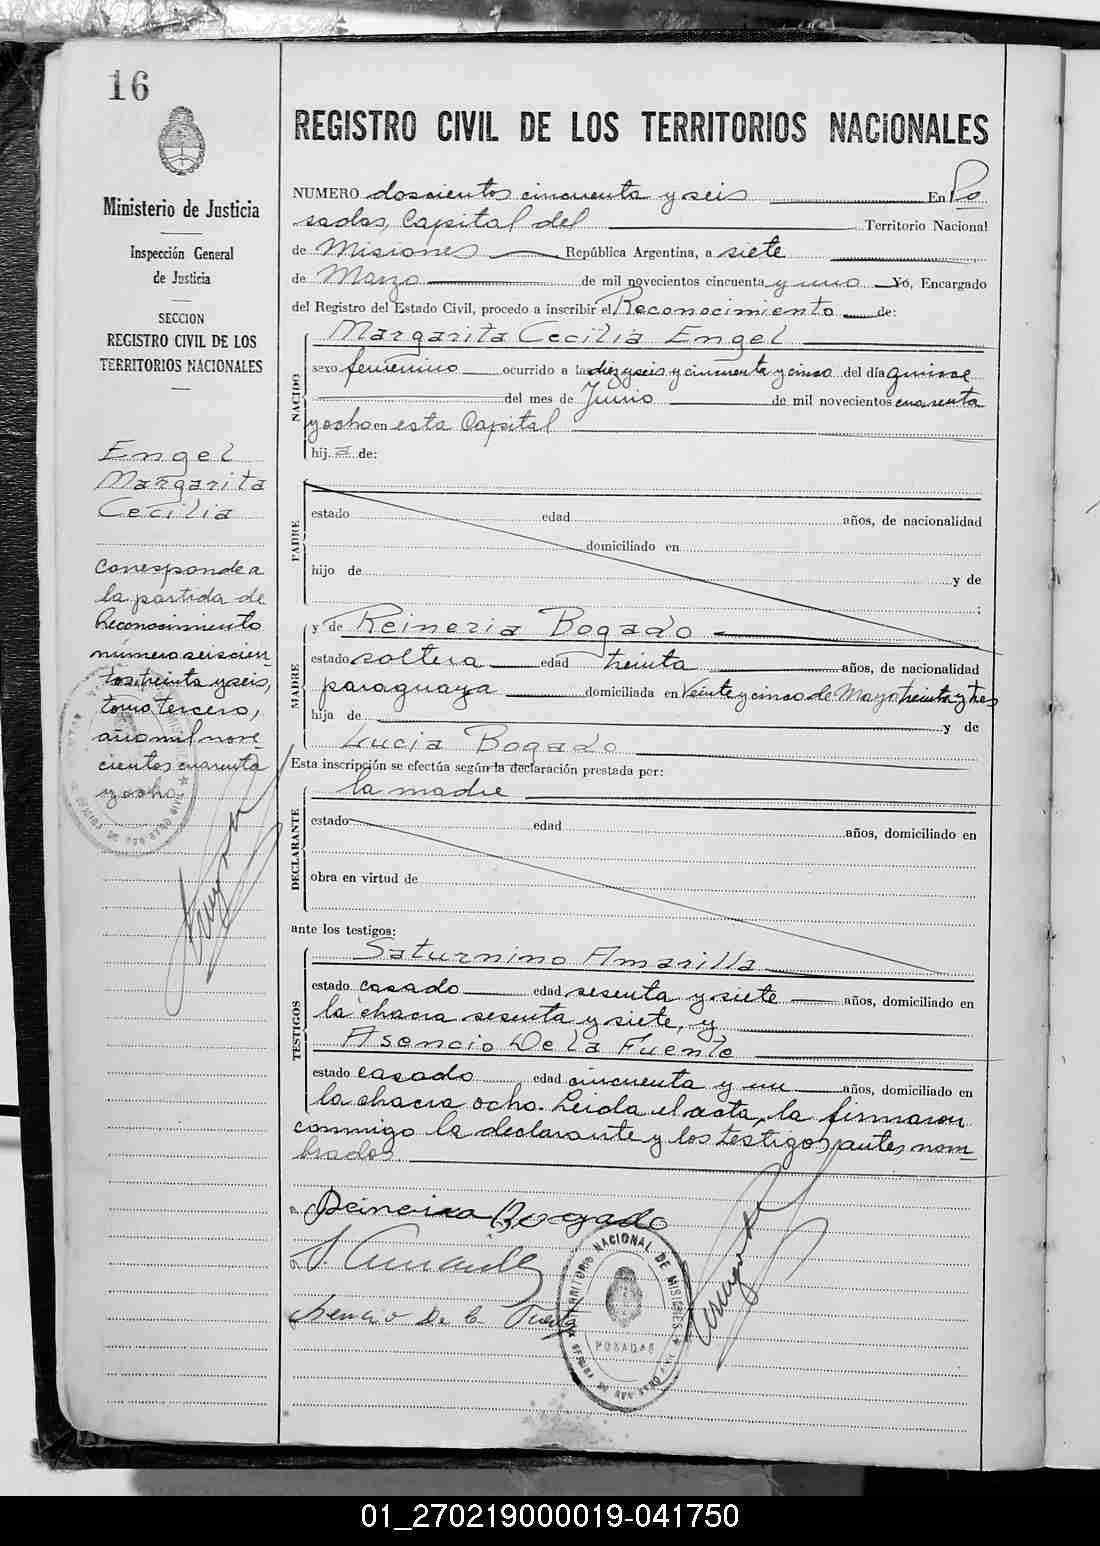 16
Ministerio de Justicia
Inspección General
de Justicia
SECCION
REGISTRO CIVIL DE LOS
TERRITORIOS NACIONALES
Engel
Margarita
Cecilia
Corresponde a
la partida de
Reconocimiento
número seiscien-
tos treinta y seis,
tomo tercero,
año mil nove-
cientos cuarenta
y ocho.
REGISTRO CIVIL DE LOS TERRITORIOS NACIONALES
NUMERO doscientos cincuenta y seis En Po
sadas, Capital del Territorio Nacional
de Misiones República Argentina, a siete
de Marzo de mil novecientos cincuenta y uno Yo, Encargado
del Registro del Estado Civil, procedo a inscribir el Reconocimiento de:
NACIDO
Margarita Cecilia Engel
sexo femenino ocurrido a las diez y seis y cincuenta y cinco del día quince
del mes de Junio de mil novecientos cuarenta
y ocho en esta Capital
hij a de:
PADRE
estado edad años, de nacionalidad
domiciliado en
hijo de y de
;
MADRE
y de Reineria Bogado
estado soltera edad treinta años, de nacionalidad
paraguaya domiciliada en Veinte y cinco de Mayo treinta y tres
hija de y de
Lucia Bogado
Esta inscripción se efectúa según la declaración prestada por:
la madre
DECLARANTE
estado edad años, domiciliado en
obra en virtud de
ante los testigos:
TESTIGOS
Saturnino Amarilla
estado casado edad sesenta y siete años, domiciliado en
la chacra sesenta y siete, y
Asencio De la Fuente
estado casado edad cincuenta y un años, domiciliado en
la chacra ocho. Leida el acta, la firmaron
conmigo la declarante y los testigos antes nom-
brados
Reineria Bogado
S. Amarilla
Asencio De la Fuente
TERRITORIO NACIONAL DE MISIONES
POSADAS
01_270219000019-041750